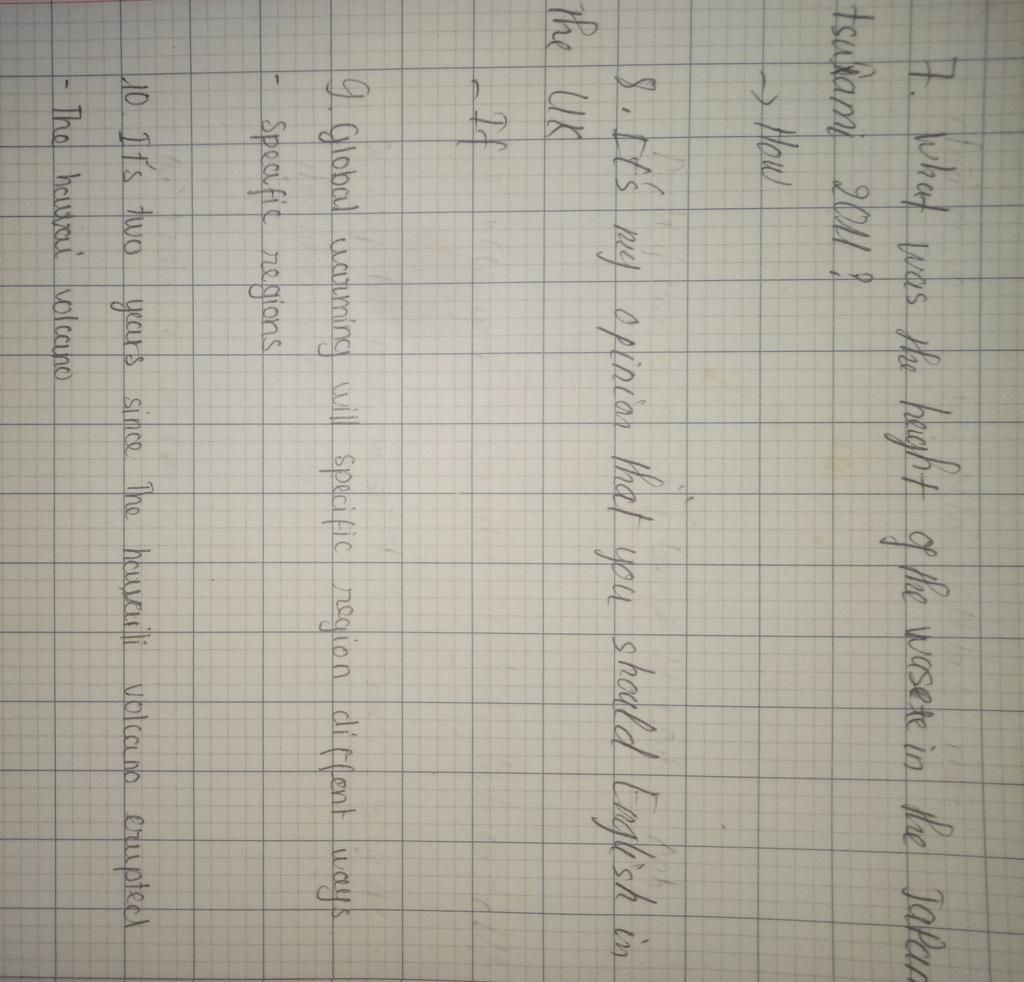 7. What was the height of the wasete in the Japan
tsunami 2011?
→ How
8. It's my opinion that you should English in
the UK
- If
9. Global warming will specific region diffent ways
- specific regions
10. It's two years since The hawaii volcano erupted
- The hawai volcano